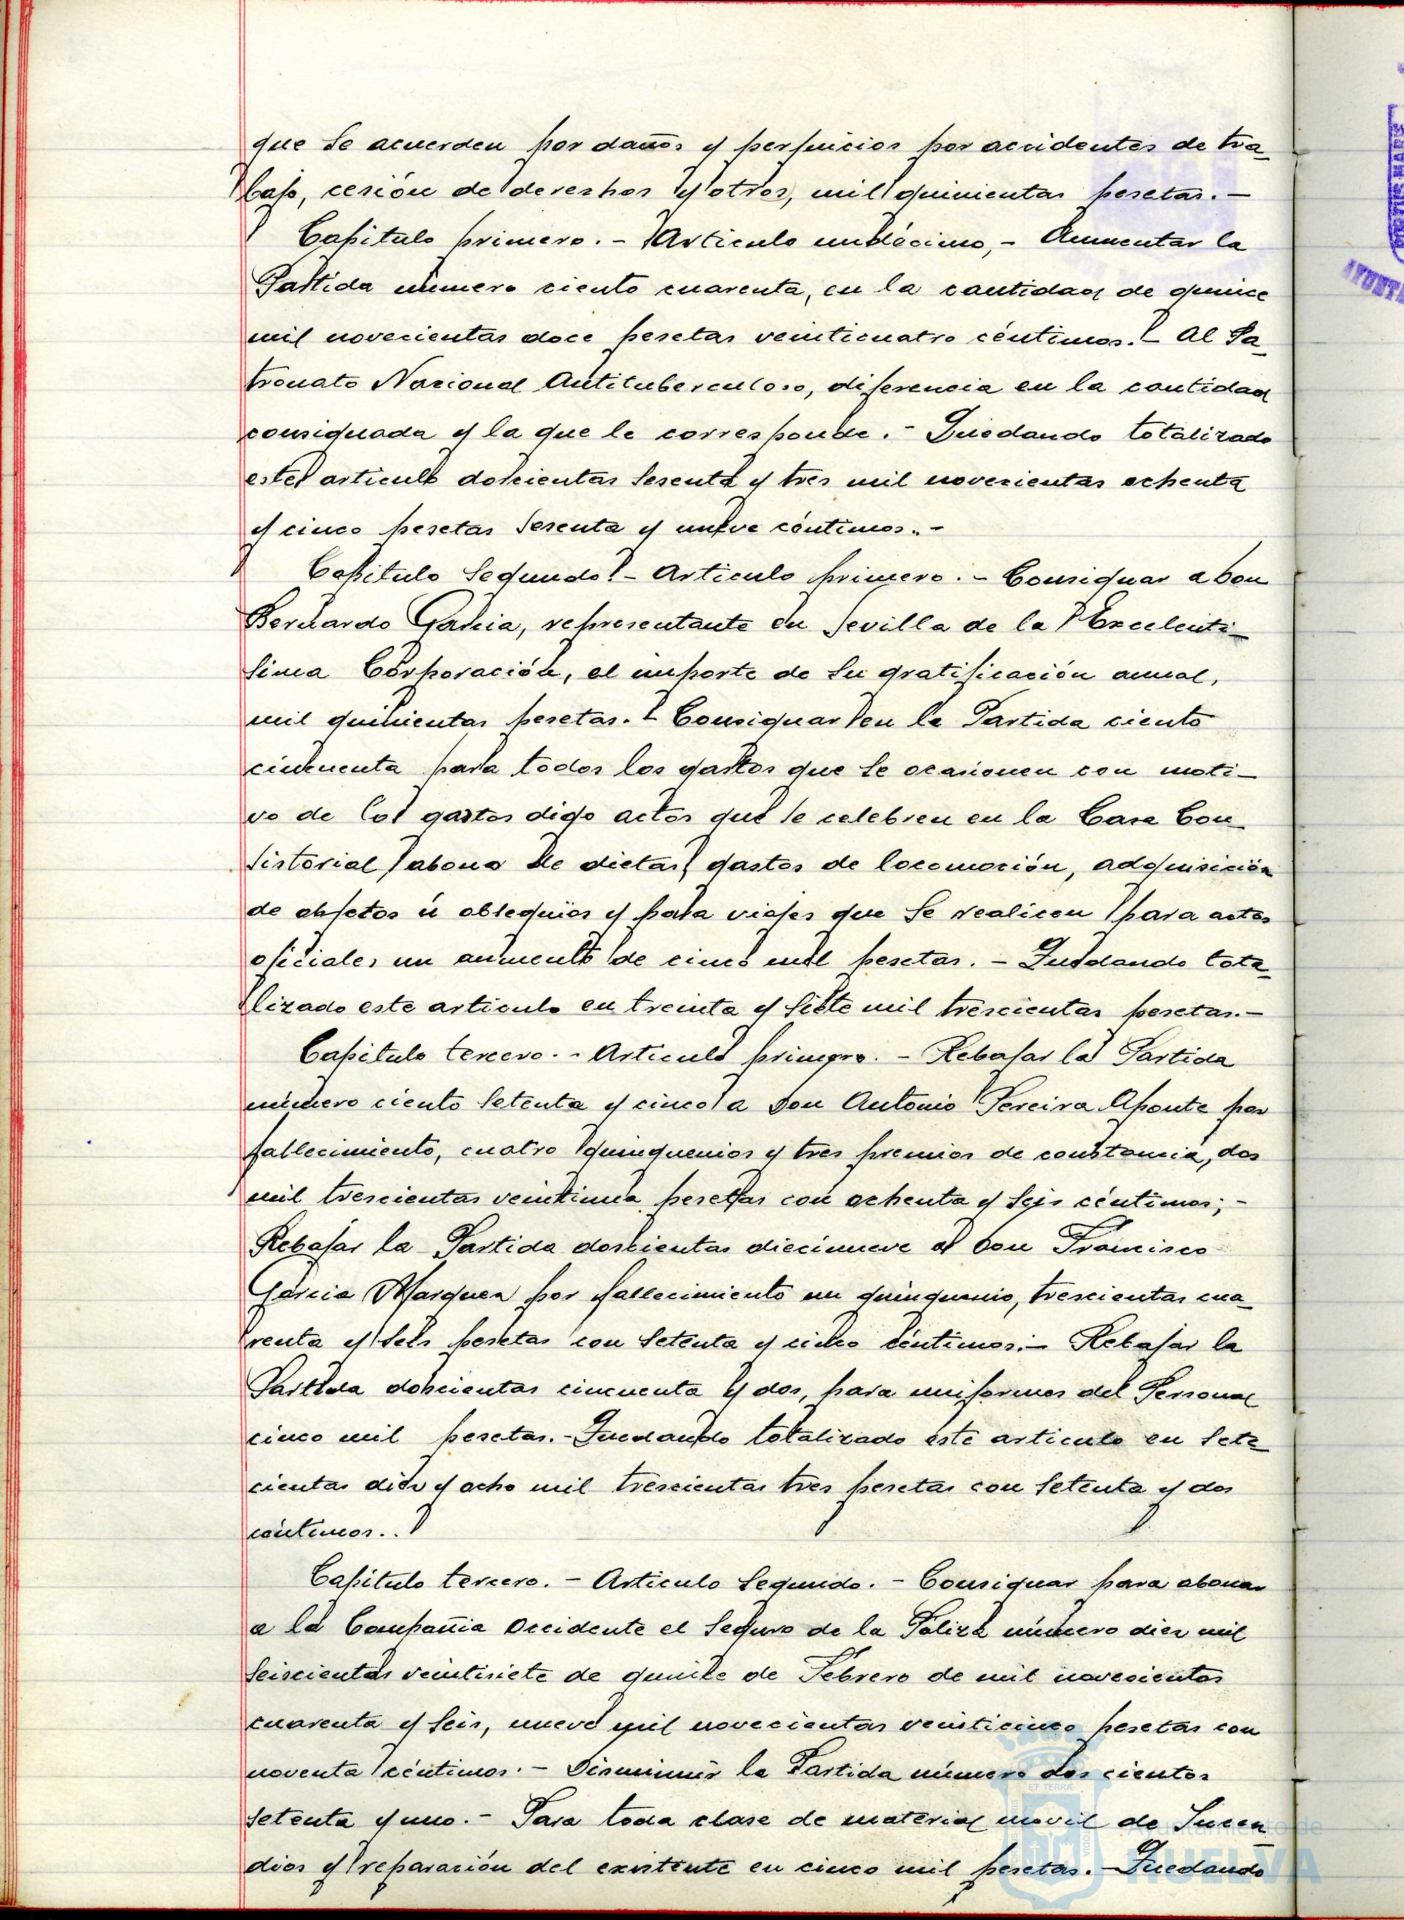 que se acuerden por daños y perjuicios por accidentes de tra-
bajo, cesión de derechos y otros, mil quinientas pesetas.-
Capitulo primero.- Articulo undécimo,- Aumentar la
Partida número ciento cuarenta, en la cantidad de quince
mil novecientas doce pesetas veinticuatro céntimos.- Al Pa-
tronato Nacional Antituberculoso, diferencia en la cantidad
consignada y la que le corresponde.- Quedando totalizado
este articulo doscientas sesenta y tres mil novecientas ochenta
y cinco pesetas sesenta y nueve céntimos.-
Capitulo segundo.- Articulo primero.- Consignar a Don
Bernardo Garcia, representante en Sevilla de la Excelenti-
sima Corporación, el importe de su gratificación anual,
mil quinientas pesetas.- Consignar en la Partida ciento
cincuenta para todos los gastos que se ocasionen con moti-
vo de los gastos digo actos que se celebren en la Casa Con-
sistorial abono de dietas, gastos de locomoción, adquisición
de objetos ú obsequios y para viajes que se realicen para actos
oficiales un aumento de cinco mil pesetas.- Quedando tota-
lizado este articulo en treinta y siete mil trescientas pesetas.-
Capitulo tercero.- Articulo primero.- Rebajar la Partida
número ciento setenta y cinco a Don Antonio Pereira Aponte por
fallecimiento, cuatro quinquenios y tres premios de constancia, dos
mil trescientas veintinueve pesetas con ochenta y seis céntimos;-
Rebajar la Partida doscientas diecinueve a Don Francisco
Garcia Marquez por fallecimiento un quinquenio, trescientas cua-
renta y seis pesetas con setenta y cinco céntimos.- Rebajar la
Partida doscientas cincuenta y dos, para uniformes del Personal
cinco mil pesetas.- Quedando totalizado este articulo en sete-
cientas diez y ocho mil trescientas tres pesetas con setenta y dos
céntimos..
Capitulo tercero.- Articulo segundo.- Consignar para abonar
a la Compañia Occidente el Seguro de la Póliza número diez mil
seiscientas veintisiete de quince de Febrero de mil novecientos
cuarenta y seis, nueve mil novecientas veinticinco pesetas con
noventa céntimos.- Disminuir la Partida número dos cientos
setenta y uno.- Para toda clase de material movil de Incen-
dios y reparación del existente en cinco mil pesetas.- Quedando
Ayuntamiento de
HUELVA